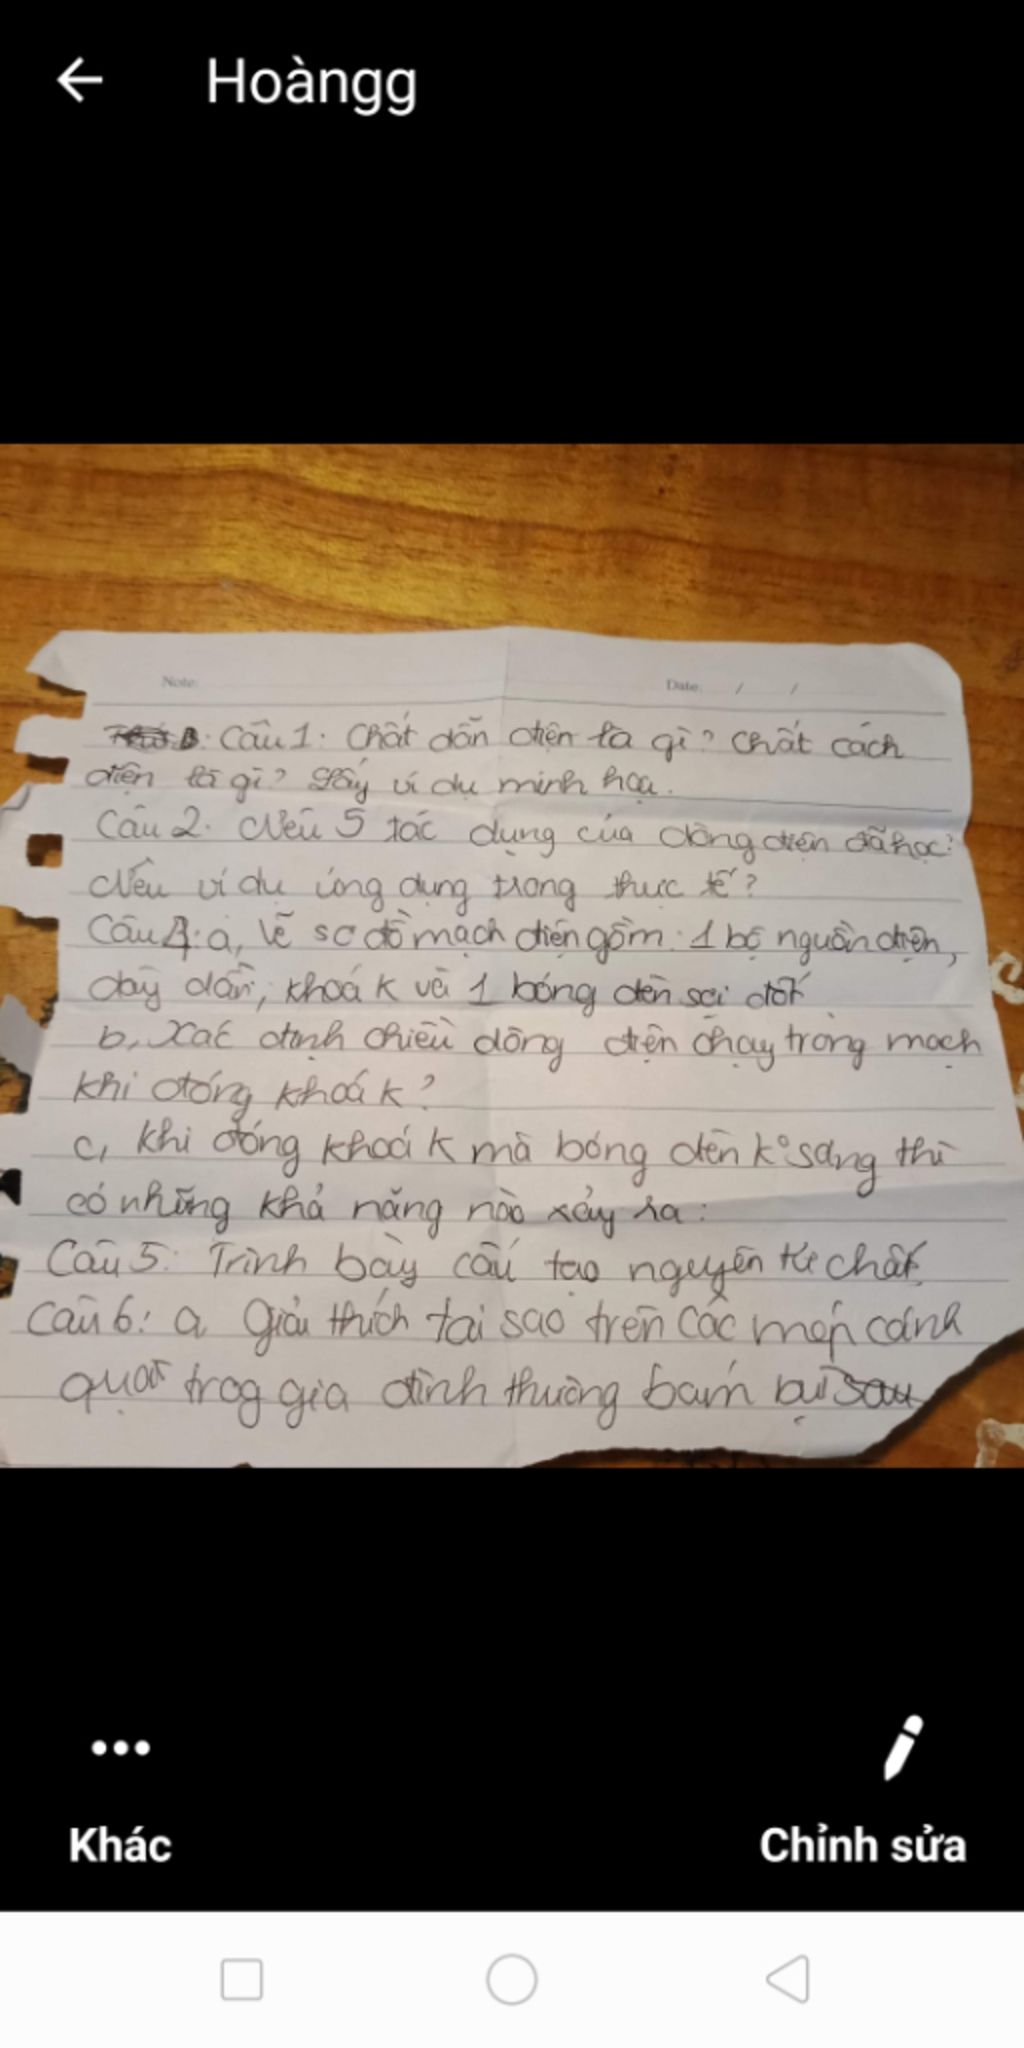 Hoàngg
Note: Date: / /
Câu 1: Chất dẫn điện là gì? Chất cách
điện là gì? Lấy ví dụ minh họa.
Câu 2. Nêu 5 tác dụng của dòng điện đã học?
Nêu ví dụ ứng dụng trong thực tế?
Câu 4: a, Vẽ sơ đồ mạch điện gồm: 1 bộ nguồn điện,
dây dẫn, khoá K và 1 bóng đèn sợi đốt
b, Xác định chiều dòng điện chạy trong mạch
khi đóng khoá K?
c, khi đóng khoá K mà bóng đèn k° sáng thì
có những khả năng nào xảy ra:
Câu 5: Trình bày cấu tạo nguyên tử chất
Câu 6: a Giải thích tại sao trên các mép cánh
quạt trog gia đình thường bám bụi sau
Khác Chỉnh sửa